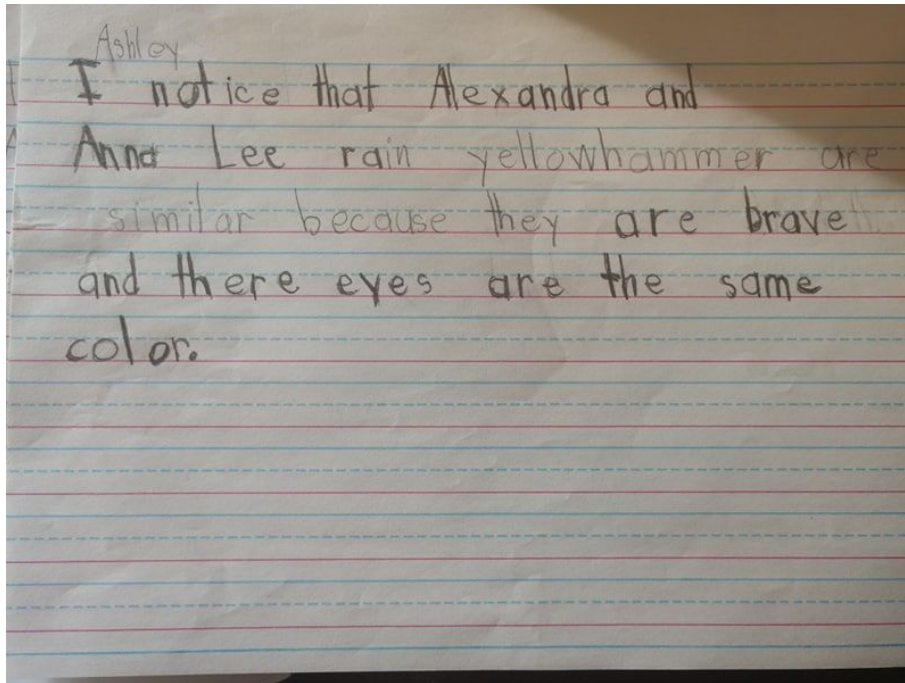 Ashley
I notice that Alexandra and
Anna Lee rain yellowhammer are
similar because they are brave
and there eyes are the same
color.